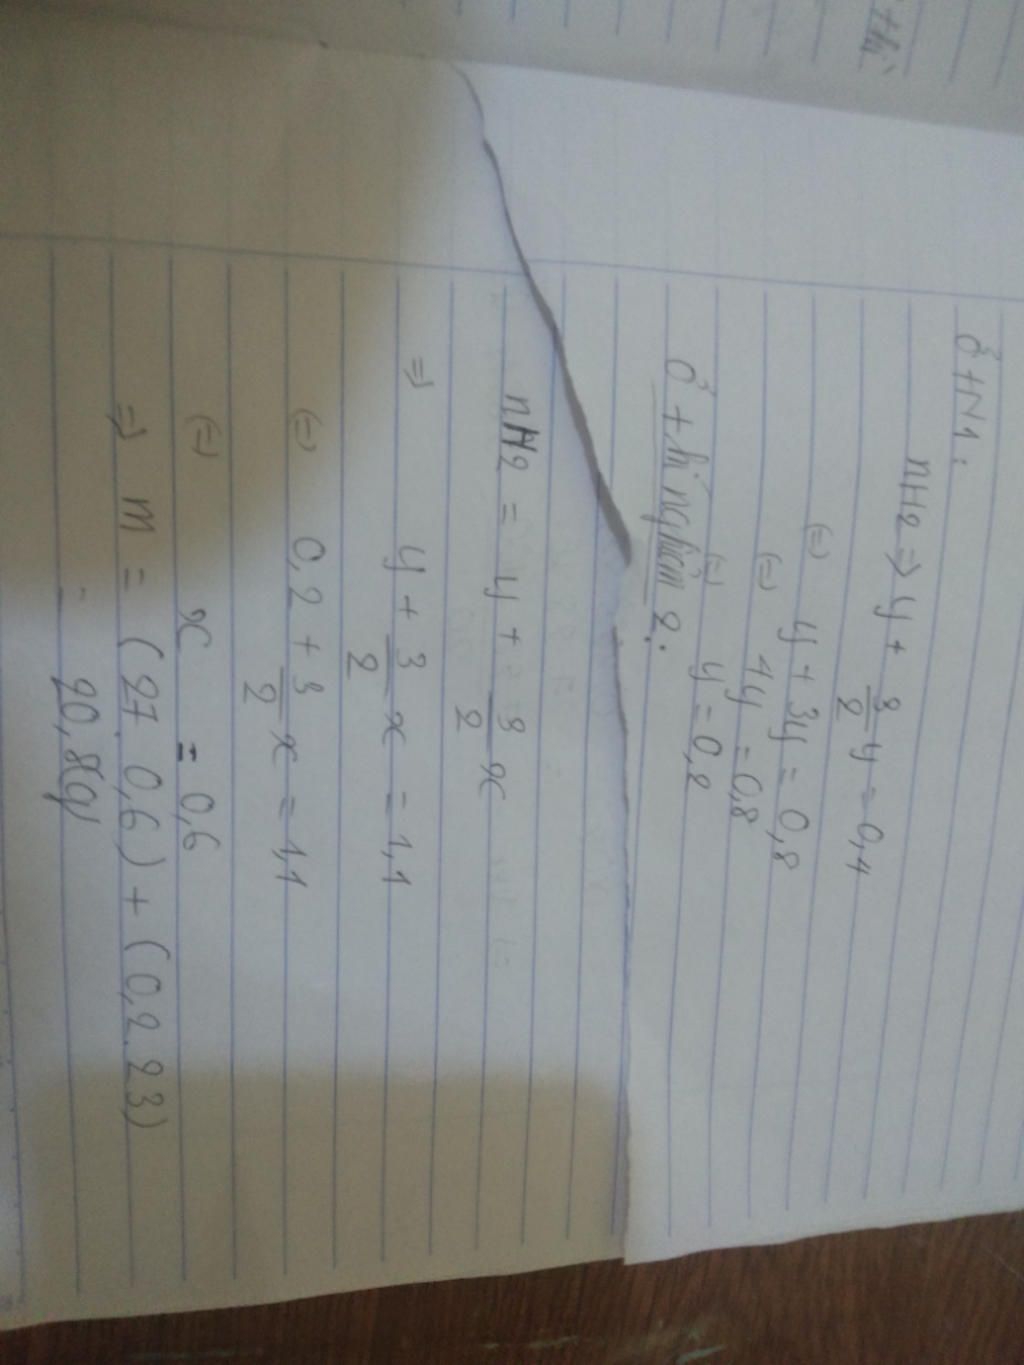 thì
Ở TN1:
nH2 => y + 3/2 y = 0,4
(=) y + 3y = 0,8
(=) 4y = 0,8
(=) y = 0,2
Ở thí nghiệm 2:
nH2 = y + 3/2 x
=> y + 3/2 x = 1,1
(=) 0,2 + 3/2 x = 1,1
(=) x = 0,6
=> m = (27.0,6) + (0,2.23)
= 20,8(g)